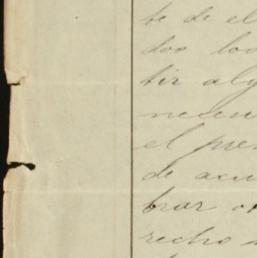 te de el
dos los
tir alg
necesi
el pre
de acu
brar o
recho